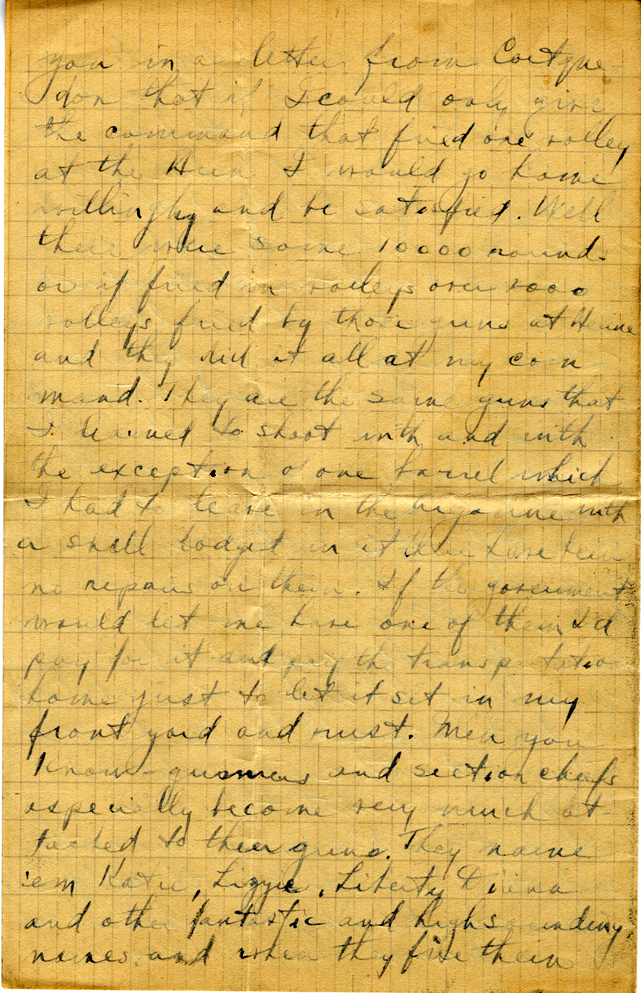 you in a letter from Coetque-
don that if I could only give
the command that fired one volley
at the Hun I would go home
willingly and be satisfied. Well
there were some 10000 rounds
or if fired in volleys over 2000
volleys fired by those guns at Heinie
and they did it all at my com
mand. They are the same guns that
I learned to shoot with and with
the exception of one barrel which
I had to leave in the Argonne with
a shell lodged in it there have been
no repairs on them. If the government
would let me have one of them I'd
pay for it and pay the transportation
home just to let it sit in my
front yard and rust. Men you
know - gunners and section chiefs
especially become very much at-
tached to their guns. They name
'em Katie, Lizzie, Liberty Diana
and other fantastic and high sounding
names and when they fire them